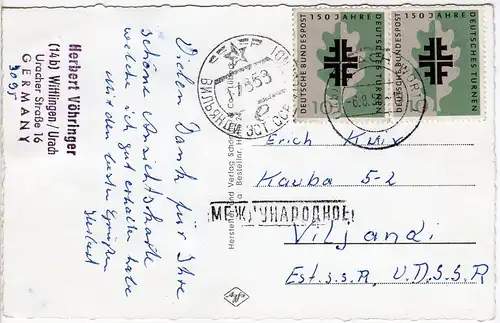 Herbert Vöhringer
(14b) Wittlingen / Urach
Uracher Straße 16
GERMANY
Vielen Dank für Ihre
schöne Ansichtskarte
welche ich gut erhalten habe
mit den besten Grüßen
Herbert
150 JAHRE
DEUTSCHES TURNEN
DEUTSCHE BUNDESPOST
10
150 JAHRE
DEUTSCHES TURNEN
DEUTSCHE BUNDESPOST
10
ВИЛЬЯНДИ
ЭСТ. ССР
Erich Kmix
Kauba 5-2
МЕЖДУНАРОДНОЕ
Viljandi
Est.s.s.R, U.D.S.S.R